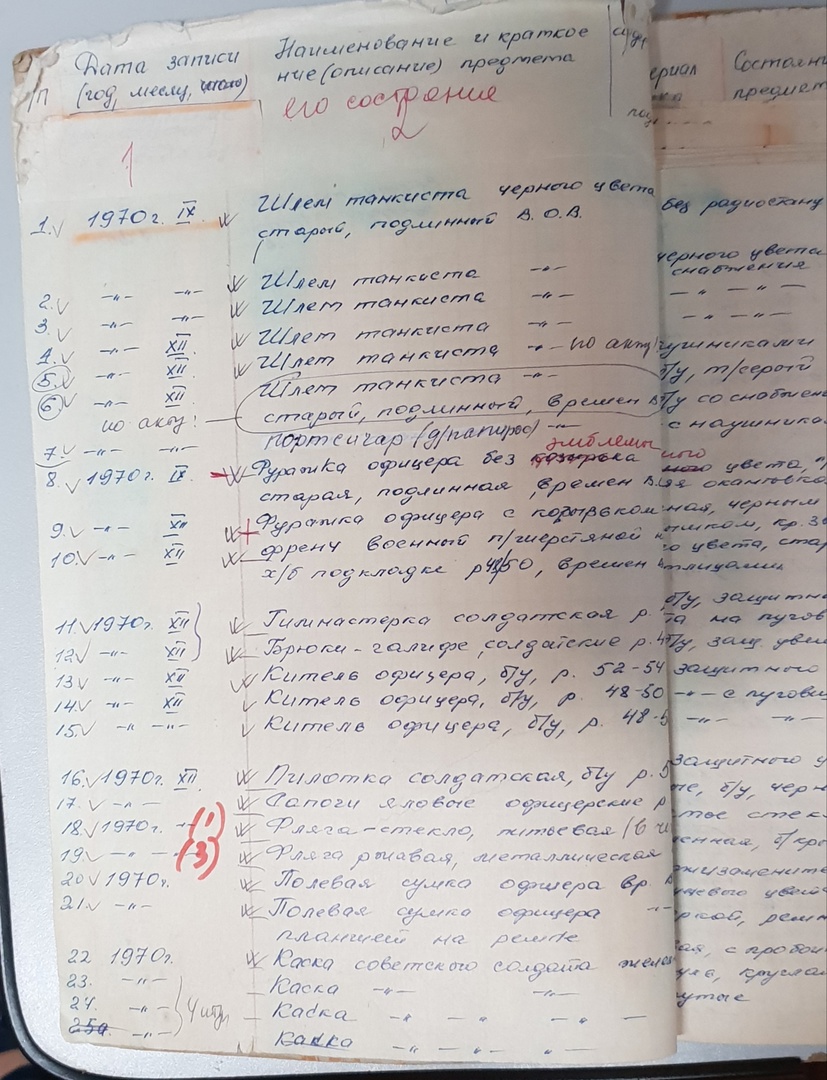 Дата записи Наименование и краткое
П/ (год, месяц, число) ние (описание) предмета
его состояния
1 2
1. 1970г. IX Шлем танкиста черного цвета
старый, подлинный В.О.В.
2. -"- -"- Шлем танкиста -"-
3. -"- -"- Шлем танкиста -"-
4. -"- XII Шлем танкиста -"-
5. -"- XII Шлем танкиста -"- по акту!
6. -"- XII Шлем танкиста -"-
по акту! старый, подлинный, времен В
7. -"- -"- портсигар (д/папирос) -"-
эмблемы
8. 1970г. IX Фуражка офицера без козырька
старая, подлинная, времен В
9. -"- XII Фуражка офицера с козырьком
10. -"- XII френч военный п/шерстяной
х/б подкладке р 48/50, времен
11. 1970г. XII Гимнастерка солдатская р.
12. -"- XII Брюки-галифе, солдатские р. 4
13 -"- XII Китель офицера, б/у, р. 52-54
14 -"- XII Китель офицера, б/у, р. 48-50
15. -"- -"- Китель офицера, б/у, р. 48-5
16. 1970г. XII Пилотка солдатская, б/у р. 5
17. -"- Сапоги яловые офицерские р
18. 1970г. -"- (1) Фляга-стекло, питьевая (в
19. -"- -"- (3) Фляга ржавая, металлическая
20 1970г. Полевая сумка офицера вр.
21. -"- Полевая сумка офицера -"-
планшет на ремне
22 1970г. Каска советского солдата желез
23. -"- Каска -"- -"-
24. -"- 4 шт. Каска -"- -"-
25а -"- Каска -"- -"- -"-
ериал Состояни
предмет
без радиостану
черного цвета
снабжения
-"- -"-
-"- -"-
ушниками
б/у, т/серый
ту со снабжени
с наушника
ного цвета,
я окантовко
ная, черным
ышком, кр. зв
о цвета, стар
тлицами
б/у, защитно
та на пугов
б/у, защ. цве
защитного
-"- с пугови
-"- -"-
защитного ц
ые, б/у, черн
тое стек
енная, б/кр
жизаменит
цевого цвет
ркой, ремн
ая, с пробои
уле, кругла
нутые